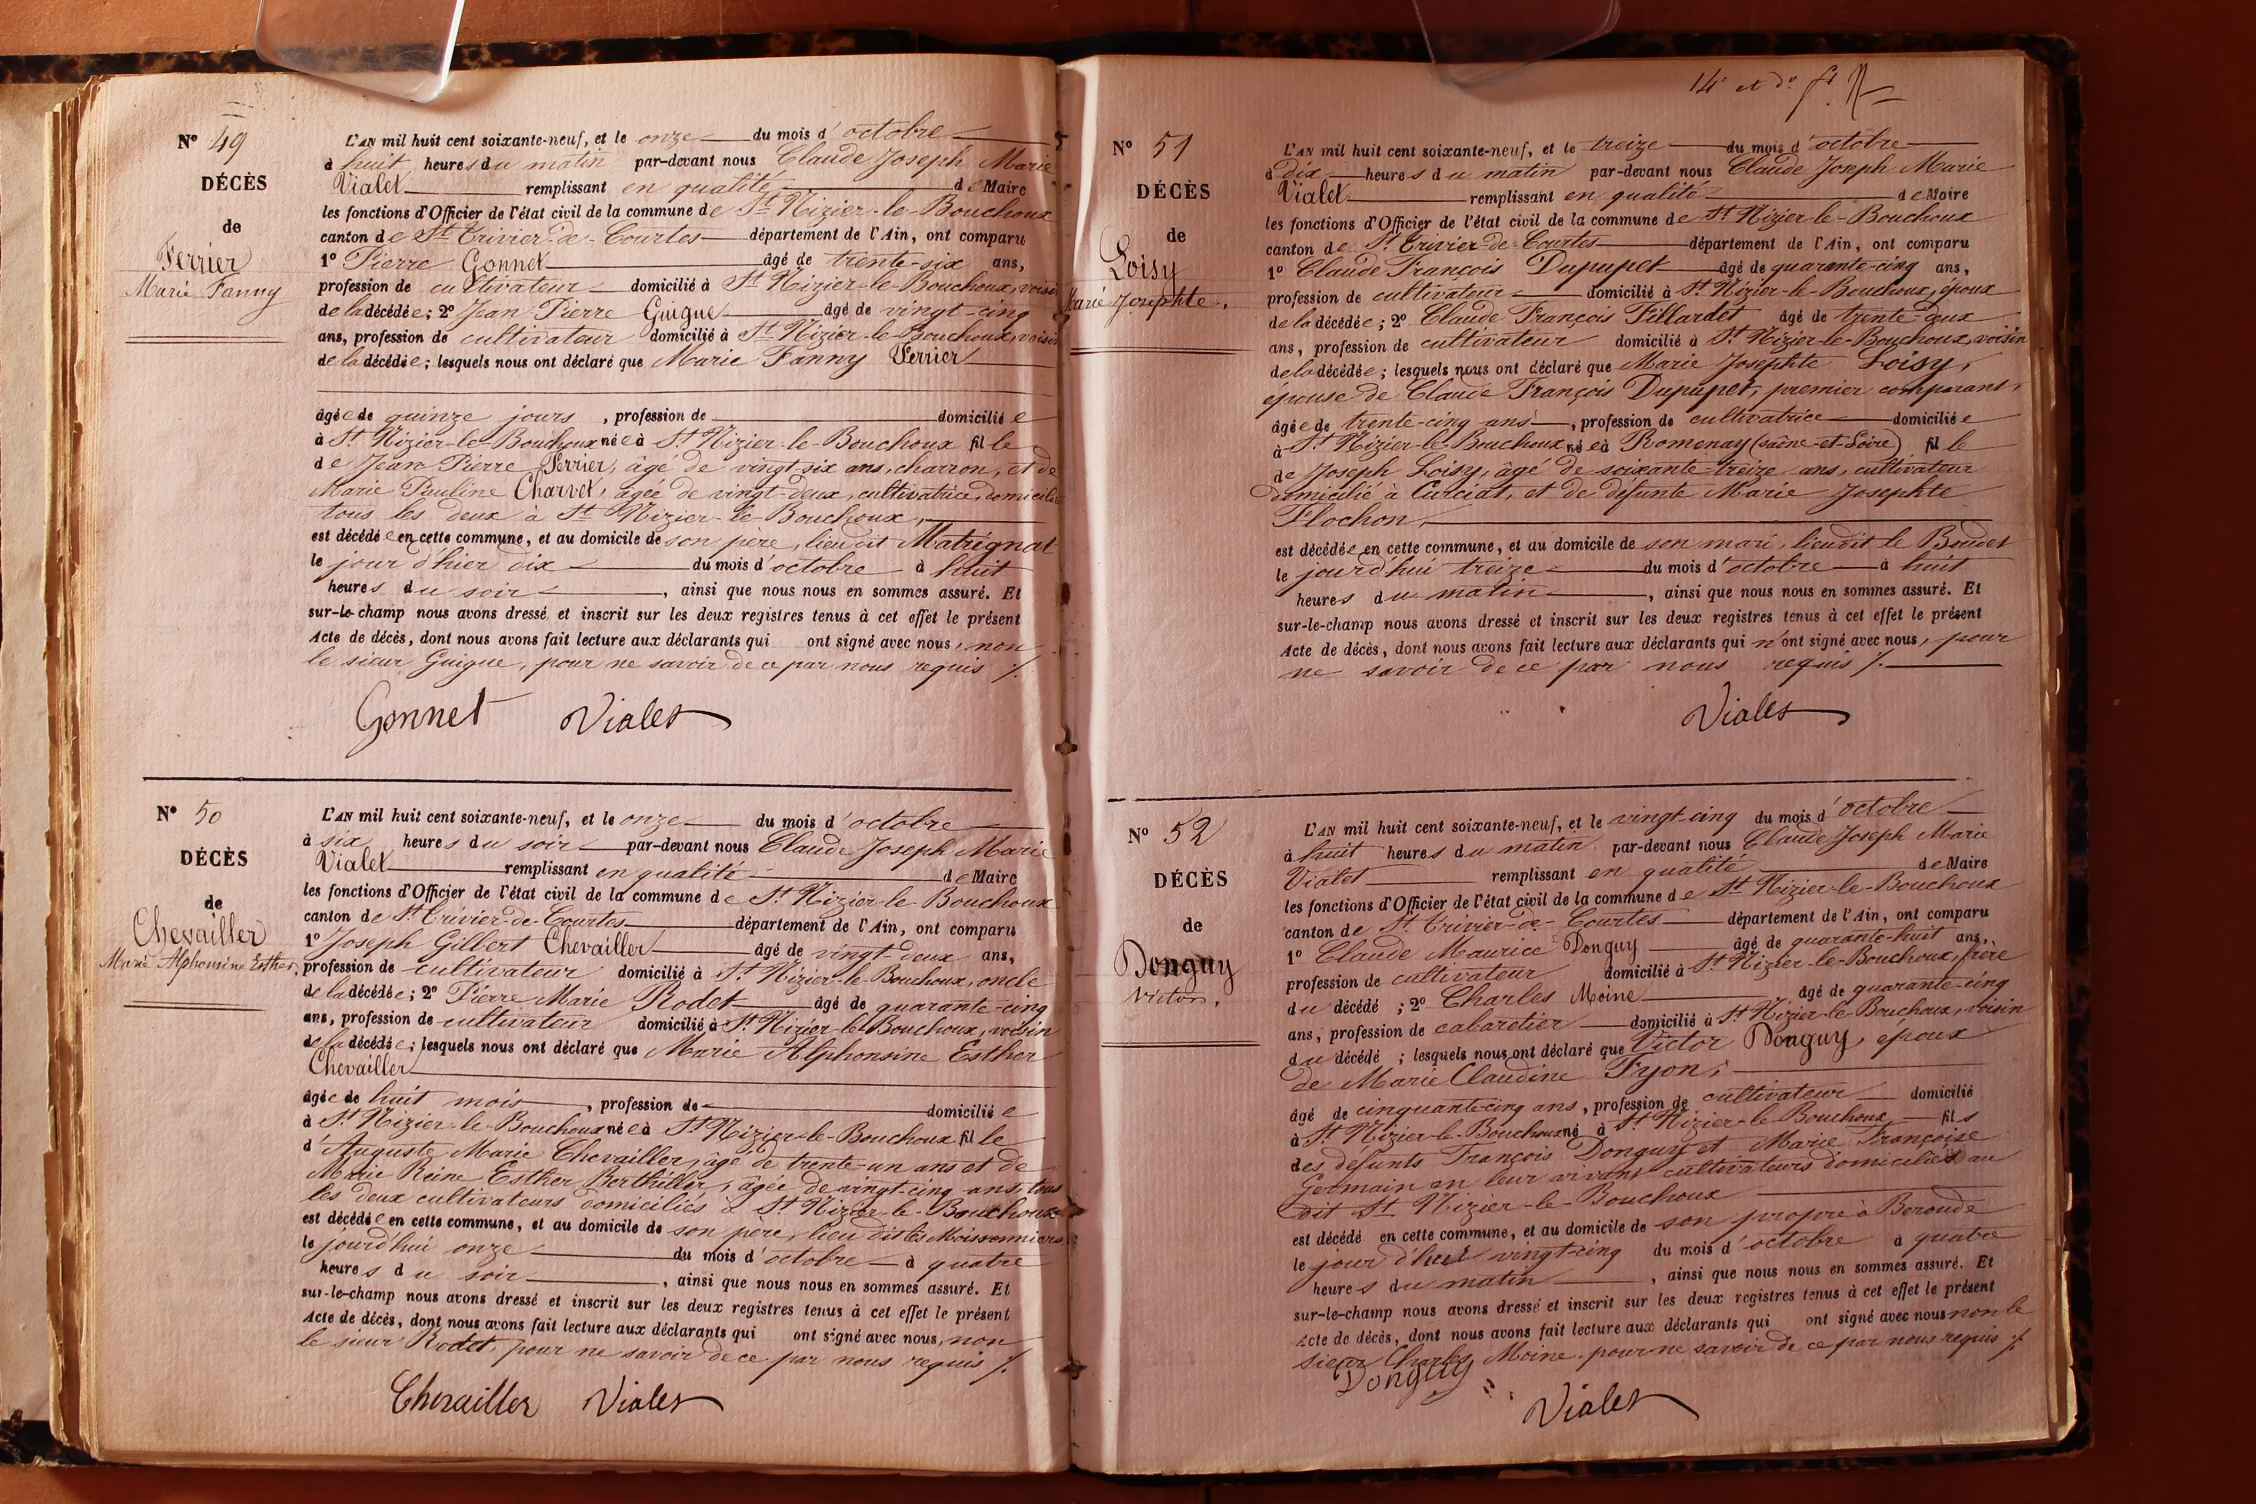 Nº 49
DÉCÈS
de
Ferrier
Marie Fanny
L'AN mil huit cent soixante-neuf, et le onze du mois d'octobre
à huit heures du matin par-devant nous Claude Joseph Marie
Vialet remplissant en qualité de Maire
les fonctions d'Officier de l'état civil de la commune de St Nizier-le-Bouchoux
canton de St Trivier-de-Courtes département de l'Ain, ont comparu
1º Pierre Gonnet âgé de trente-six ans,
profession de cultivateur domicilié à St Nizier-le-Bouchoux, voisin
de la décédée; 2º Jean Pierre Guigue âgé de vingt-cinq
ans, profession de cultivateur domicilié à St Nizier-le-Bouchoux, voisin
de la décédée; lesquels nous ont déclaré que Marie Fanny Ferrier
âgée de quinze jours, profession de domiciliée
à St Nizier-le-Bouchoux née à St Nizier-le-Bouchoux fille
de Jean Pierre Ferrier, âgé de vingt-six ans, charron, et de
Marie Pauline Charvet, âgée de vingt-deux, cultivatrice, domiciliés
tous les deux à St Nizier-le-Bouchoux,
est décédée en cette commune, et au domicile de son père, lieu dit Matrignat
le jour d'hier dix du mois d'octobre à huit
heures du soir, ainsi que nous nous en sommes assuré. Et
sur-le-champ nous avons dressé et inscrit sur les deux registres tenus à cet effet le présent
Acte de décès, dont nous avons fait lecture aux déclarants qui ont signé avec nous, non
le sieur Guigue, pour ne savoir de ce par nous requis /.
Gonnet Vialet
Nº 50
DÉCÈS
de
Chevailler
Marie Alphonsine Esther,
L'AN mil huit cent soixante-neuf, et le onze du mois d'octobre
à six heures du soir par-devant nous Claude Joseph Marie
Vialet remplissant en qualité de Maire
les fonctions d'Officier de l'état civil de la commune de St Nizier-le-Bouchoux
canton de St Trivier-de-Courtes département de l'Ain, ont comparu
1º Joseph Gilbert Chevailler âgé de vingt-deux ans,
profession de cultivateur domicilié à St Nizier-le-Bouchoux, oncle
de la décédée; 2º Pierre Marie Rodet âgé de quarante-cinq
ans, profession de cultivateur domicilié à St Nizier-le-Bouchoux, voisin
de la décédée; lesquels nous ont déclaré que Marie Alphonsine Esther
Chevailler
âgée de huit mois, profession de domiciliée
à St Nizier-le-Bouchoux née à St Nizier-le-Bouchoux fille
d'Auguste Marie Chevailler, âgé de trente-un ans et de
Marie Reine Esther Berthiller, âgée de vingt-cinq ans, tous
les deux cultivateurs domiciliés à St Nizier-le-Bouchoux
est décédée en cette commune, et au domicile de son père, lieu dit les Moissonniers
le jourd'hui onze du mois d'octobre à quatre
heures du soir, ainsi que nous nous en sommes assuré. Et
sur-le-champ nous avons dressé et inscrit sur les deux registres tenus à cet effet le présent
Acte de décès, dont nous avons fait lecture aux déclarants qui ont signé avec nous, non
le sieur Rodet, pour ne savoir de ce par nous requis /.
Chevailler Vialet
14e et der
Nº 51
DÉCÈS
de
Loisy
Marie Josephte,
L'AN mil huit cent soixante-neuf, et le treize du mois d'octobre
à dix heures du matin par-devant nous Claude Joseph Marie
Vialet remplissant en qualité de Maire
les fonctions d'Officier de l'état civil de la commune de St Nizier-le-Bouchoux
canton de St Trivier-de-Courtes département de l'Ain, ont comparu
1º Claude François Dupupet âgé de quarante-cinq ans,
profession de cultivateur domicilié à St Nizier-le-Bouchoux, époux
de la décédée; 2º Claude François Fillardet âgé de trente-deux
ans, profession de cultivateur domicilié à St Nizier-le-Bouchoux, voisin
de la décédée; lesquels nous ont déclaré que Marie Josephte Loisy,
épouse de Claude François Dupupet, premier comparant,
âgée de trente-cinq ans, profession de cultivatrice domiciliée
à St Nizier-le-Bouchoux née à Romenay (Saône-et-Loire) fille
de Joseph Loisy, âgé de soixante-treize ans, cultivateur
domicilié à Curciat, et de défunte Marie Josephte
Flochon,
est décédée en cette commune, et au domicile de son mari, lieu dit le Boudet
le jourd'hui treize du mois d'octobre à huit
heures du matin, ainsi que nous nous en sommes assuré. Et
sur-le-champ nous avons dressé et inscrit sur les deux registres tenus à cet effet le présent
Acte de décès, dont nous avons fait lecture aux déclarants qui n'ont signé avec nous, pour
ne savoir de ce par nous requis /.
Vialet
Nº 52
DÉCÈS
de
Donguy
Victor,
L'AN mil huit cent soixante-neuf, et le vingt-cinq du mois d'octobre
à huit heures du matin par-devant nous Claude Joseph Marie
Vialet remplissant en qualité de Maire
les fonctions d'Officier de l'état civil de la commune de St Nizier-le-Bouchoux
canton de St Trivier-de-Courtes département de l'Ain, ont comparu
1º Claude Maurice Donguy âgé de quarante-huit ans,
profession de cultivateur domicilié à St Nizier-le-Bouchoux, frère
du décédé; 2º Charles Moine âgé de quarante-cinq
ans, profession de cabaretier domicilié à St Nizier-le-Bouchoux, voisin
du décédé; lesquels nous ont déclaré que Victor Donguy, époux
de Marie Claudine Fyon,
âgé de cinquante-cinq ans, profession de cultivateur domicilié
à St Nizier-le-Bouchoux né à St Nizier-le-Bouchoux fils
des défunts François Donguy et Marie Françoise
Germain en leur vivant cultivateurs domiciliés au
dit St Nizier-le-Bouchoux
est décédé en cette commune, et au domicile de son propre à Beroude
le jour d'hui vingt-cinq du mois d'octobre à quatre
heures du matin, ainsi que nous nous en sommes assuré. Et
sur-le-champ nous avons dressé et inscrit sur les deux registres tenus à cet effet le présent
Acte de décès, dont nous avons fait lecture aux déclarants qui ont signé avec nous non le
sieur Charles Moine pour ne savoir de ce par nous requis /.
Donguy
Vialet